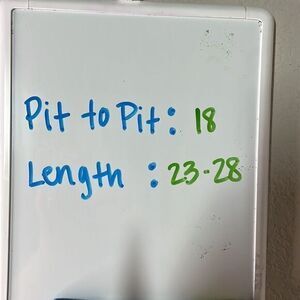 Pit to Pit: 18
Length : 23-28